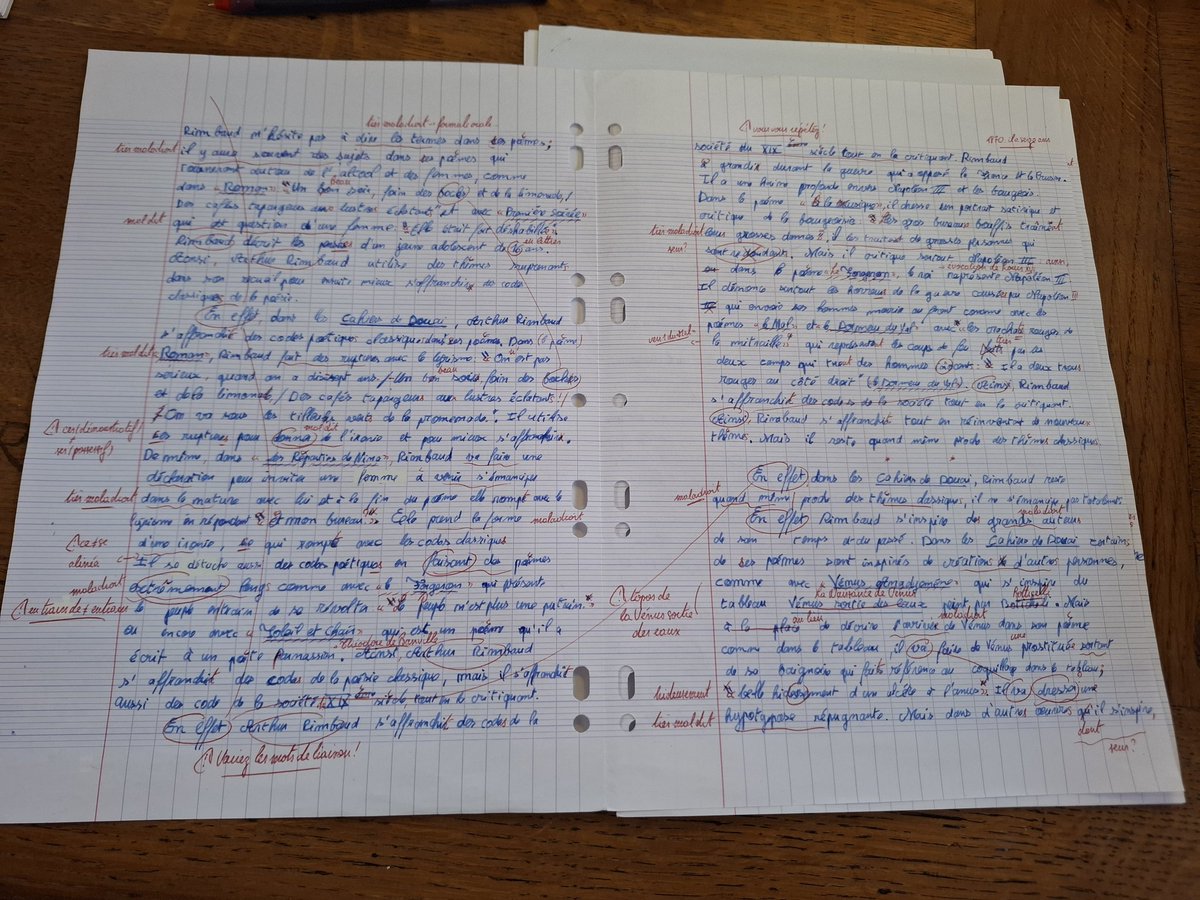 très maladroit - formule orale
Rimbaud n'hésite pas à dire les termes dans ses poèmes;
très maladroit
il y aura souvent des sujets dans ses poèmes qui
tourneront autour de l'alcool et des femmes comme
dans "Roman" "Un beau soir, foin des bocks et de la limonade, /
Des cafés tapageurs aux lustres éclatants" et avec "Première soirée"
mal dit
qui est question de une femme. "Elle était fort déshabillée".
en lettres
Rimbaud, décrit les pensées d'un jeune adolescent de 16 ans.
Ainsi, Arthur Rimbaud utilise des thèmes surprenants
dans son recueil pour ensuite mieux s'affranchir des codes
classiques de la poésie.
En effet dans les Cahier de Douai, Arthur Rimbaud
s'affranchit des codes poétiques classiques dans ses poèmes. Dans (le poème)
très maladroit
Roman, Rimbaud fait des ruptures avec le lyrisme: "On n'est pas
beau
sérieux, quand on a dixsept ans. /-Un bon soir, foin des bocks
et de la limonade, / Des cafés tapageurs aux lustres éclatants! /
-On va sous les tilleuls verts de la promenade." Il utilise
ces (démonstratif)
ses (possessif)
mal dit
Ses ruptures pour donner de l'ironie et pour mieux s'affranchir.
De même, dans "Les Réparties de Nina", Rimbaud va faire une
déclaration pour inviter une femme à venir s'émanciper
très maladroit
dans la nature avec lui et à la fin du poème elle rompt avec le
lyrisme en répondant "et mon bureau". Cela prend la forme
maladroit
d'une ironie, se qui rompt avec les codes classiques
ce ≠ se
alinéa
Il se détache aussi des codes poétiques en faisant des poèmes
maladroit
extrêmement longs comme avec "le Forgeron" qui présente
en train de ≠ entraîner
le peuple entrain de se révolter "le Peuple n'est plus une putain."
ou encore avec "Soleil et Chair" qui est un poème qu'il a
Théodore de Banville
écrit à un poète Parnassien. Ainsi, Arthur Rimbaud
s'affranchit des codes de la poésie classique, mais il s'affranchit
aussi des code de la société XIX ème siècle tout en le critiquant.
En effet Arthur Rimbaud s'affranchit des codes de la
Variez les mots de liaison!
vous vous répétez!
société du XIX ème siècle tout en la critiquant. Rimbaud
1870
à grandir durant la guerre qui a opposé la France et la Prusse.
Il a une haine profonde envers Napoléon III et les bourgeois.
Dans le poème "à la musique", il dresse un portrait satirique et
critique de la bourgeoisie "Les gros bureaux bouffis traînent
très maladroit
leurs grosses dames", il les traitent de grosses personnes qui
sens?
sont redondants. Mais il critique surtout Napoléon III
ou dans le poème "le Forgeron", le roi représente Napoléon III.
Il dénonce surtout les horreurs de la guerre causées par Napoléon III
qui envoie ses hommes mourir au front comme avec les
poèmes "le Mal" et "le Dormeur du Val" avec "les crachats rouges de
la mitraille" qui représentent les coups de feu par les
deux camps qui tuent des hommes à avant: "Il a deux trous
rouges au côté droit" (le Dormeur du Val). Ainsi, Rimbaud
s'affranchit des codes de la société tout en la critiquant.
Ainsi, Rimbaud s'affranchit tout en réinventant de nouveaux
thèmes. Mais il reste quand même proche des thèmes classiques.
En effet dans les Cahier de Douai, Rimbaud reste
maladroit
quand même proche des thèmes classiques, il ne s'émancipe pas totalement.
maladroit
En effet Rimbaud s'inspire des grands auteurs
de son temps et du passé. Dans les Cahier de Douai certains
de ses poèmes sont inspirés de créations d'autres personnes,
comme avec Vénus Anadyomène qui s'inspire du
La Naissance de Vénus
Botticelli
tableau Vénus sortie des eaux peint par Botticeli. Mais
topos de
la Vénus sortie
des eaux
au lieu
maladroit
à la place de décrire l'arrivée de Vénus dans son poème
une
comme dans le tableau, il va faire de Vénus prostituée sortant
de sa baignoire qui faits référence au coquillage dans le tableau;
hideusement
"belle hideusement d'un ulcère à l'anus" Il va dresser une
très mal dit
hypotypose répugnante. Mais dans d'autres œuvres qu'il s'inspire,
dont
sens?